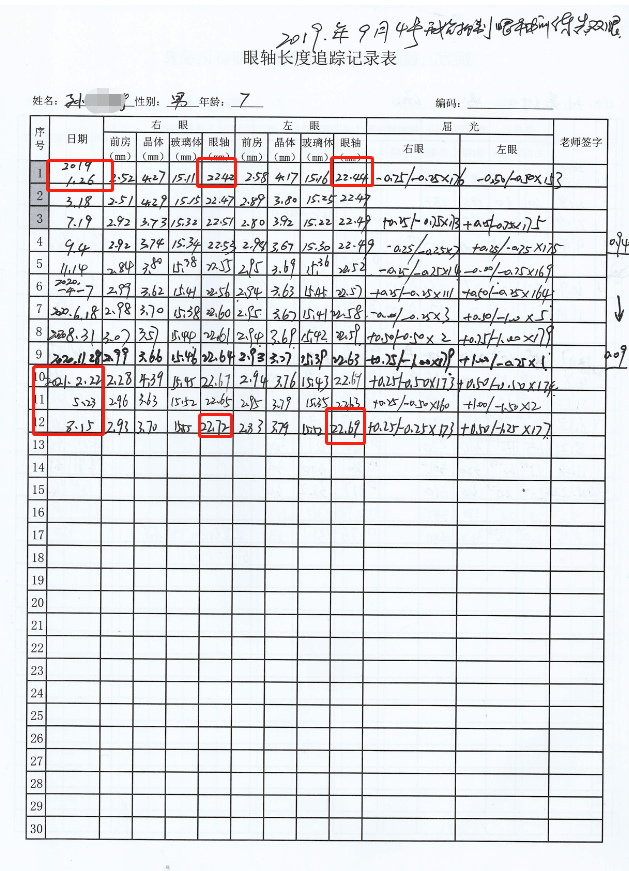 2019.年9月4号
眼轴长度追踪记录表
姓名: 性别: 男 年龄: 7 编码:
序号 日期 右 眼 左 眼 屈 光 老师签字
前房(mm) 晶体(mm) 玻璃体(mm) 眼轴(mm) 前房(mm) 晶体(mm) 玻璃体(mm) 眼轴(mm) 右眼 左眼
1 2019 1.26 2.52 4.27 15.11 22.42 2.58 4.17 15.16 22.44 -0.75/-0.25×176 -0.50/-0.50×153
2 3.18 2.51 4.29 15.15 22.47 2.89 3.80 15.25 22.47
3 7.19 2.92 3.73 15.32 22.51 2.80 3.92 15.22 22.49 +0.25/-0.75×173 +0.50/-0.75×175
4 9.4 2.92 3.74 15.34 22.53 2.98 3.67 15.30 22.49 -0.25/-0.25×7 +0.25/-0.75×175
5 11.14 2.84 3.80 15.38 22.55 2.95 3.69 15.36 22.52
6 2020. 2.99 3.62 15.41 22.56 2.94 3.63 15.45 22.57 +0.25/-0.25×111 +0.50/-0.25×164
7 2020.6.18 2.98 3.70 15.38 22.60 2.95 3.67 15.41 22.58 +0.50/-1.00×5
8 2020.8.31 3.07 3.57 15.44 22.61 2.94 3.69 15.42 22.59 +0.50/-0.50×2 +0.25/-1.00×179
9 2020.11.28 2.99 3.66 15.46 22.64 2.93 3.77 15.39 22.63 +0.25/-1.00×179 +1.00/-0.25×1
10 2021.2.22 2.28 4.39 15.45 22.67 2.94 3.76 15.43 22.67 +0.25/-0.50×173 +0.50/-0.50×174
11 5.23 2.96 3.63 15.52 22.65 2.95 3.79 15.35 22.63 +0.25/-0.50×160 +1.00/-1.50×12
12 8.15 2.93 3.70 15.55 22.72 2.33 3.79 15.52 22.69 +0.25/-0.25×173 +0.50/-1.25×177
13
14
15
16
17
18
19
20
21
22
23
24
25
26
27
28
29
30